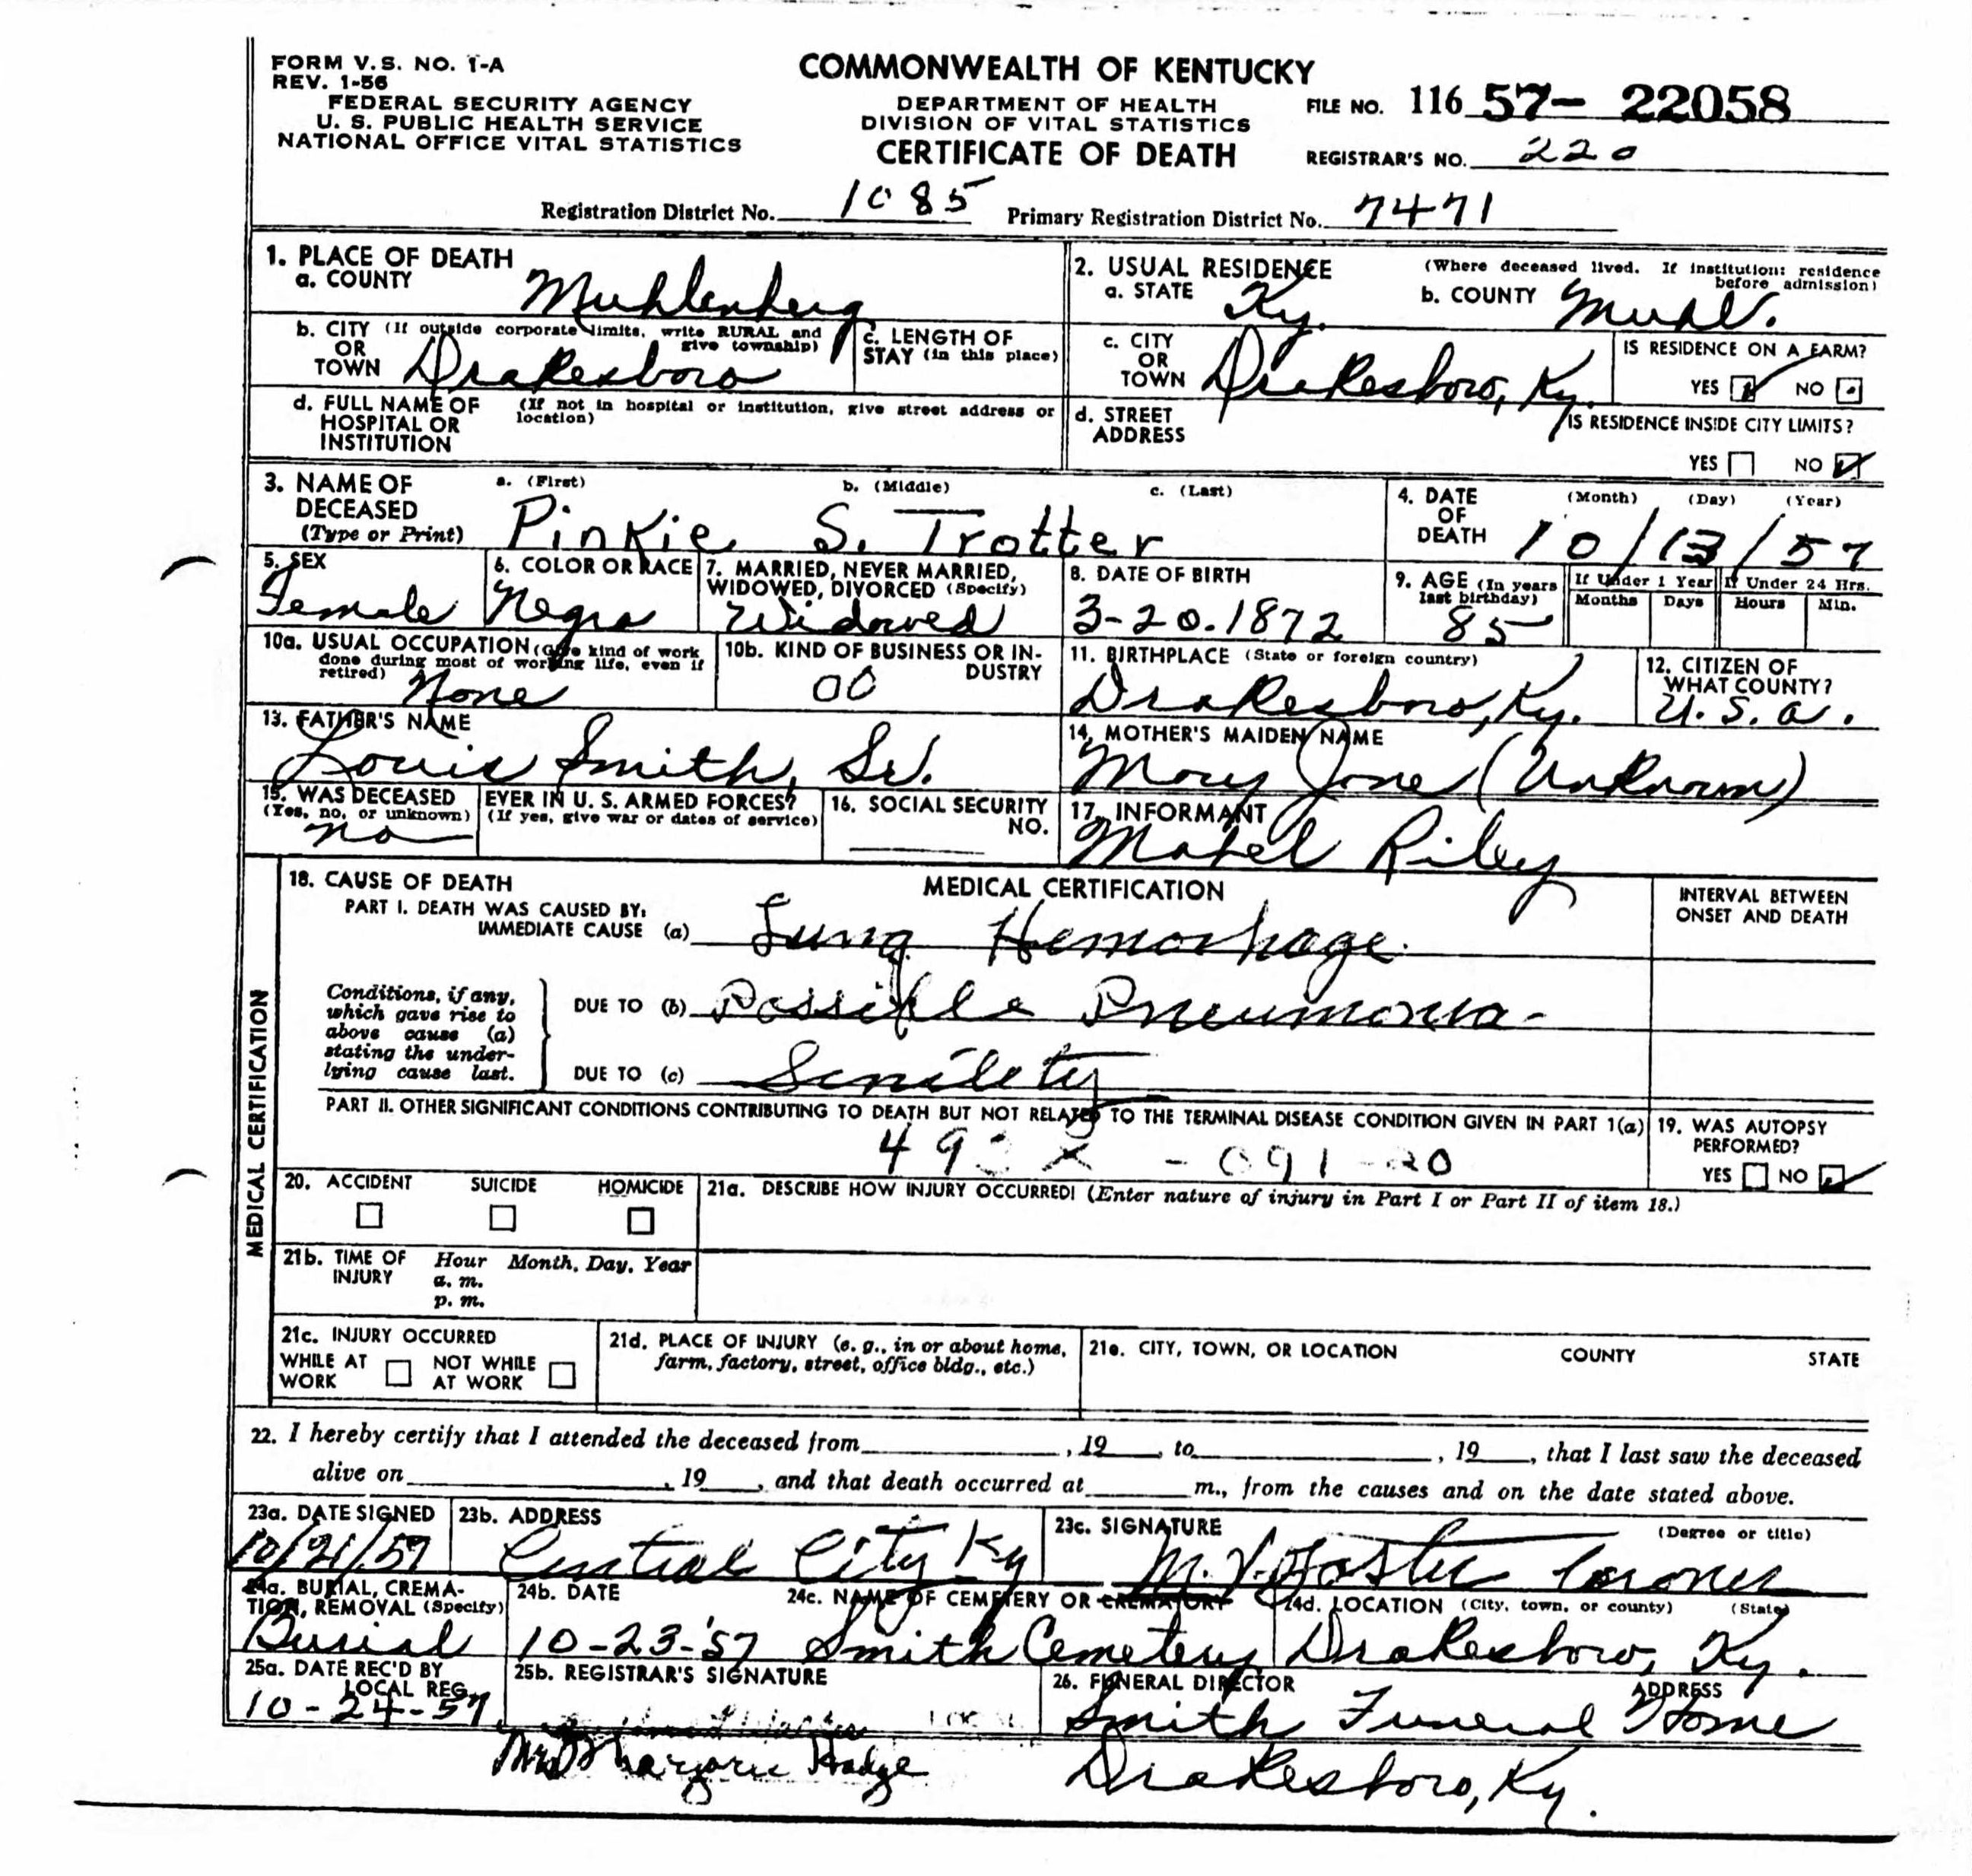 FORM V.S. NO. 1-A
REV. 1-56
FEDERAL SECURITY AGENCY
U. S. PUBLIC HEALTH SERVICE
NATIONAL OFFICE VITAL STATISTICS
COMMONWEALTH OF KENTUCKY
DEPARTMENT OF HEALTH
DIVISION OF VITAL STATISTICS
CERTIFICATE OF DEATH
FILE NO. 116 57- 22058
REGISTRAR'S NO. 220
Registration District No. 1085 Primary Registration District No. 7471
1. PLACE OF DEATH
a. COUNTY Muhlenberg
2. USUAL RESIDENCE (Where deceased lived. If institution: residence before admission)
a. STATE Ky. b. COUNTY Muhl.
b. CITY (If outside corporate limits, write RURAL and give township)
OR
TOWN Drakesboro
c. LENGTH OF
STAY (in this place)
c. CITY
OR
TOWN Drakesboro, Ky.
IS RESIDENCE ON A FARM?
YES NO
d. FULL NAME OF (If not in hospital or institution, give street address or location)
HOSPITAL OR
INSTITUTION
d. STREET
ADDRESS
IS RESIDENCE INSIDE CITY LIMITS?
YES NO
3. NAME OF
DECEASED
(Type or Print)
a. (First) b. (Middle) c. (Last)
Pinkie S. Trotter
4. DATE
OF
DEATH
(Month) (Day) (Year)
10/13/57
5. SEX
Female
6. COLOR OR RACE
Negro
7. MARRIED, NEVER MARRIED,
WIDOWED, DIVORCED (Specify)
Widowed
8. DATE OF BIRTH
3-20.1872
9. AGE (In years
last birthday)
85
If Under 1 Year If Under 24 Hrs.
Months Days Hours Min.
10a. USUAL OCCUPATION (Give kind of work
done during most of working life, even if
retired) None
10b. KIND OF BUSINESS OR IN-
DUSTRY
00
11. BIRTHPLACE (State or foreign country)
Drakesboro, Ky.
12. CITIZEN OF
WHAT COUNTY?
U.S.A.
13. FATHER'S NAME
Louis Smith, Sr.
14. MOTHER'S MAIDEN NAME
Mary Jane (Unknown)
15. WAS DECEASED EVER IN U. S. ARMED FORCES?
(Yes, no, or unknown) (If yes, give war or dates of service)
no
16. SOCIAL SECURITY
NO.
17. INFORMANT
Mabel Riley
MEDICAL CERTIFICATION
18. CAUSE OF DEATH
MEDICAL CERTIFICATION
INTERVAL BETWEEN
ONSET AND DEATH
PART I. DEATH WAS CAUSED BY:
IMMEDIATE CAUSE (a) Lung Hemorhage.
Conditions, if any,
which gave rise to
above cause (a)
stating the under-
lying cause last.
DUE TO (b) Possible Pneumonia-
DUE TO (c) Senility
PART II. OTHER SIGNIFICANT CONDITIONS CONTRIBUTING TO DEATH BUT NOT RELATED TO THE TERMINAL DISEASE CONDITION GIVEN IN PART 1(a)
- 091-20
19. WAS AUTOPSY
PERFORMED?
YES NO
20. ACCIDENT SUICIDE HOMICIDE
21a. DESCRIBE HOW INJURY OCCURRED! (Enter nature of injury in Part I or Part II of item 18.)
21b. TIME OF
INJURY
Hour Month, Day, Year
a. m.
p. m.
21c. INJURY OCCURRED
WHILE AT
WORK
NOT WHILE
AT WORK
21d. PLACE OF INJURY (e. g., in or about home,
farm, factory, street, office bldg., etc.)
21e. CITY, TOWN, OR LOCATION COUNTY STATE
22. I hereby certify that I attended the deceased from , 19 , to , 19 , that I last saw the deceased
alive on , 19 , and that death occurred at m., from the causes and on the date stated above.
23a. DATE SIGNED
10/21/57
23b. ADDRESS
Central City Ky
23c. SIGNATURE (Degree or title)
M. V. Foster Coroner
24a. BURIAL, CREMA-
TION, REMOVAL (Specify)
Burial
24b. DATE
10-23-'57
24c. NAME OF CEMETERY OR CREMATORY
Smith Cemetery
24d. LOCATION (City, town, or county) (State)
Drakesboro, Ky.
25a. DATE REC'D BY
LOCAL REG.
10-24-57
25b. REGISTRAR'S SIGNATURE
Mrs Marjorie Hodge
26. FUNERAL DIRECTOR ADDRESS
Smith Funeral Home
Drakesboro, Ky.